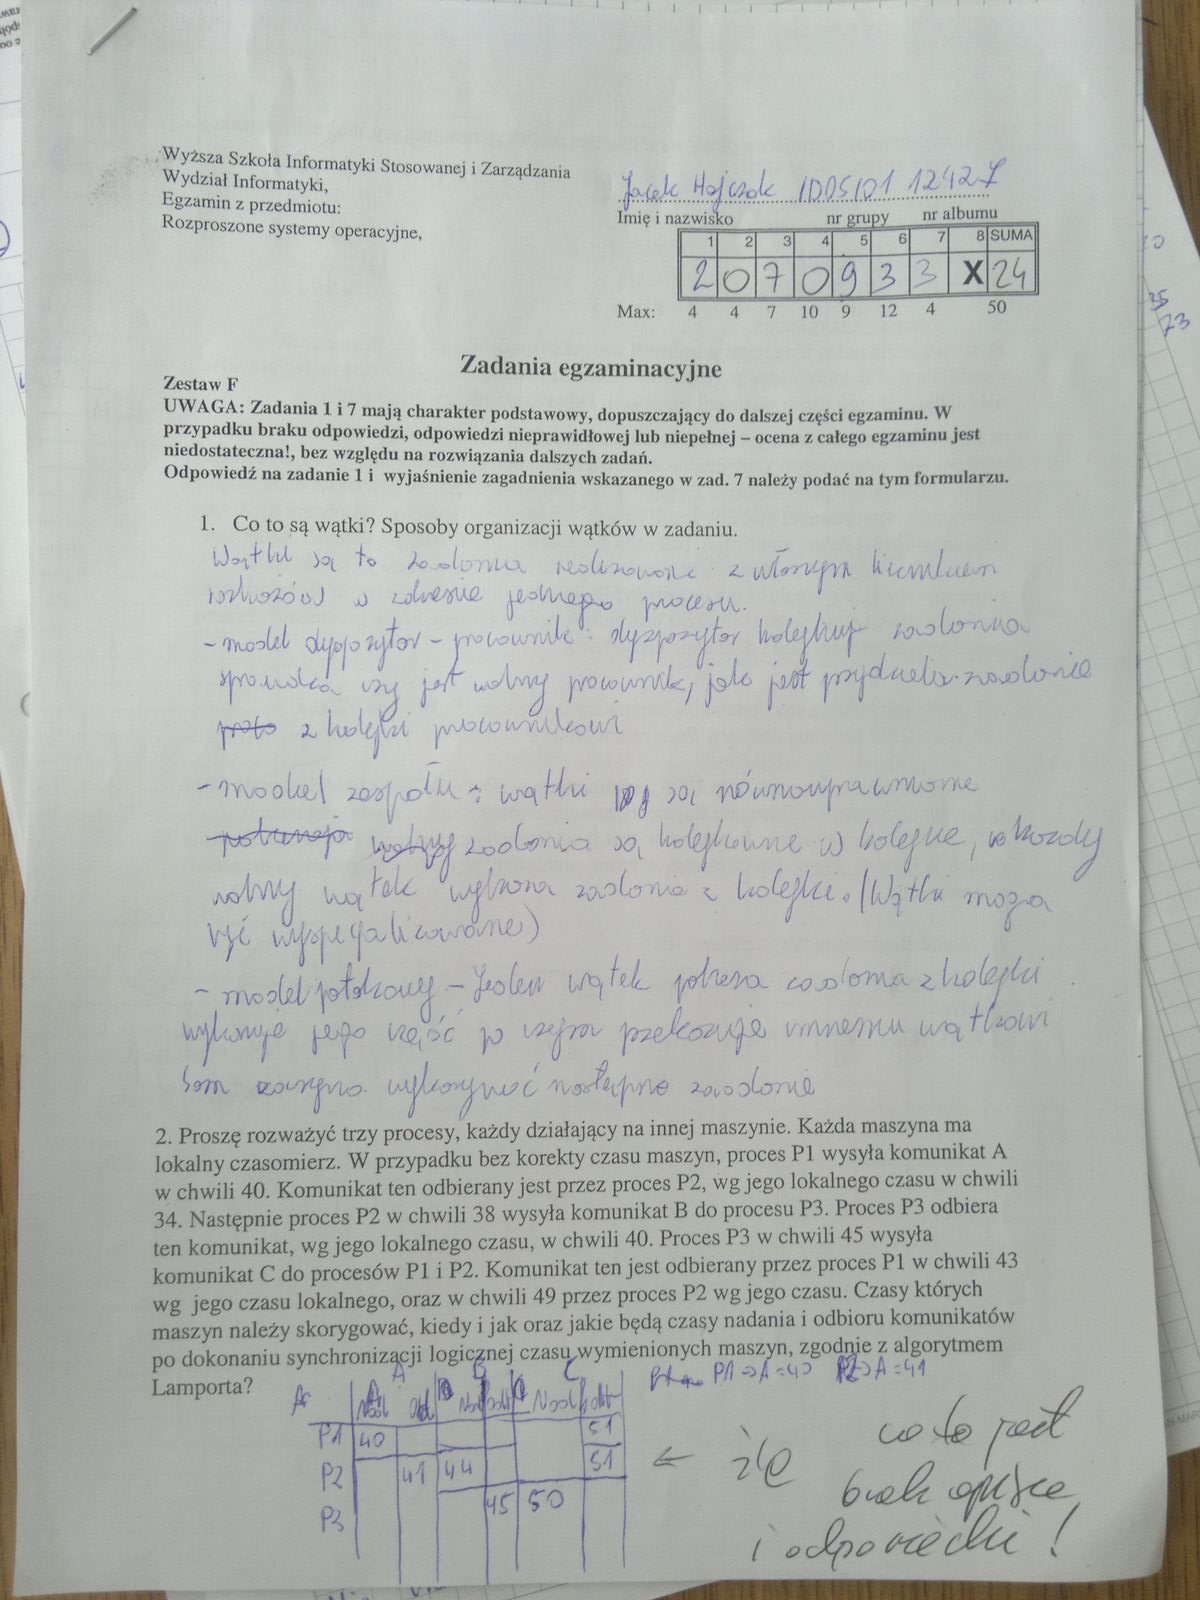 Wyższa Szkoła Informatyki Stosowanej i Zarządzania
Wydział Informatyki,
Egzamin z przedmiotu:
Rozproszone systemy operacyjne,
Jacek ID05IO1
Imię i nazwisko nr grupy nr albumu
1 2 3 4 5 6 7 8 SUMA
2 0 7 0 9 3 3 X 24
Max: 4 4 7 10 9 12 4 50
Zadania egzaminacyjne
Zestaw F
UWAGA: Zadania 1 i 7 mają charakter podstawowy, dopuszczający do dalszej części egzaminu. W
przypadku braku odpowiedzi, odpowiedzi nieprawidłowej lub niepełnej – ocena z całego egzaminu jest
niedostateczna!, bez względu na rozwiązania dalszych zadań.
Odpowiedź na zadanie 1 i wyjaśnienie zagadnienia wskazanego w zad. 7 należy podać na tym formularzu.
1. Co to są wątki? Sposoby organizacji wątków w zadaniu.
Wątki są to zadania realizowane z własnym licznikiem
rozkazów w zakresie jednego procesu.
- model dyspozytor - pracownik : dyspozytor kolejkuje zadania
sprawdza czy jest wolny pracownik, jak jest przydziela zadanie
z kolejki pracownikowi
- model zespołu : wątki są równouprawnione
zadania są kolejkowane w kolejce, każdy
wolny wątek wykona zadanie z kolejki. (Wątki mogą
być wyspecjalizowane)
- model potokowy - Jeden wątek pobiera zadania z kolejki
wykonuje jego część po czym przekazuje innemu wątkowi
Sam zaczyna wykonywać następne zadanie
2. Proszę rozważyć trzy procesy, każdy działający na innej maszynie. Każda maszyna ma
lokalny czasomierz. W przypadku bez korekty czasu maszyn, proces P1 wysyła komunikat A
w chwili 40. Komunikat ten odbierany jest przez proces P2, wg jego lokalnego czasu w chwili
34. Następnie proces P2 w chwili 38 wysyła komunikat B do procesu P3. Proces P3 odbiera
ten komunikat, wg jego lokalnego czasu, w chwili 40. Proces P3 w chwili 45 wysyła
komunikat C do procesów P1 i P2. Komunikat ten jest odbierany przez proces P1 w chwili 43
wg jego czasu lokalnego, oraz w chwili 49 przez proces P2 wg jego czasu. Czasy których
maszyn należy skorygować, kiedy i jak oraz jakie będą czasy nadania i odbioru komunikatów
po dokonaniu synchronizacji logicznej czasu wymienionych maszyn, zgodnie z algorytmem
Lamporta?
A B C
P1 => A = 40 P2 => A = 41
Nad Od Nad odb Nad odb
P1 40 51
P2 41 44 51
P3 45 50
← źle
co to jest
brak opisu
i odpowiedzi !